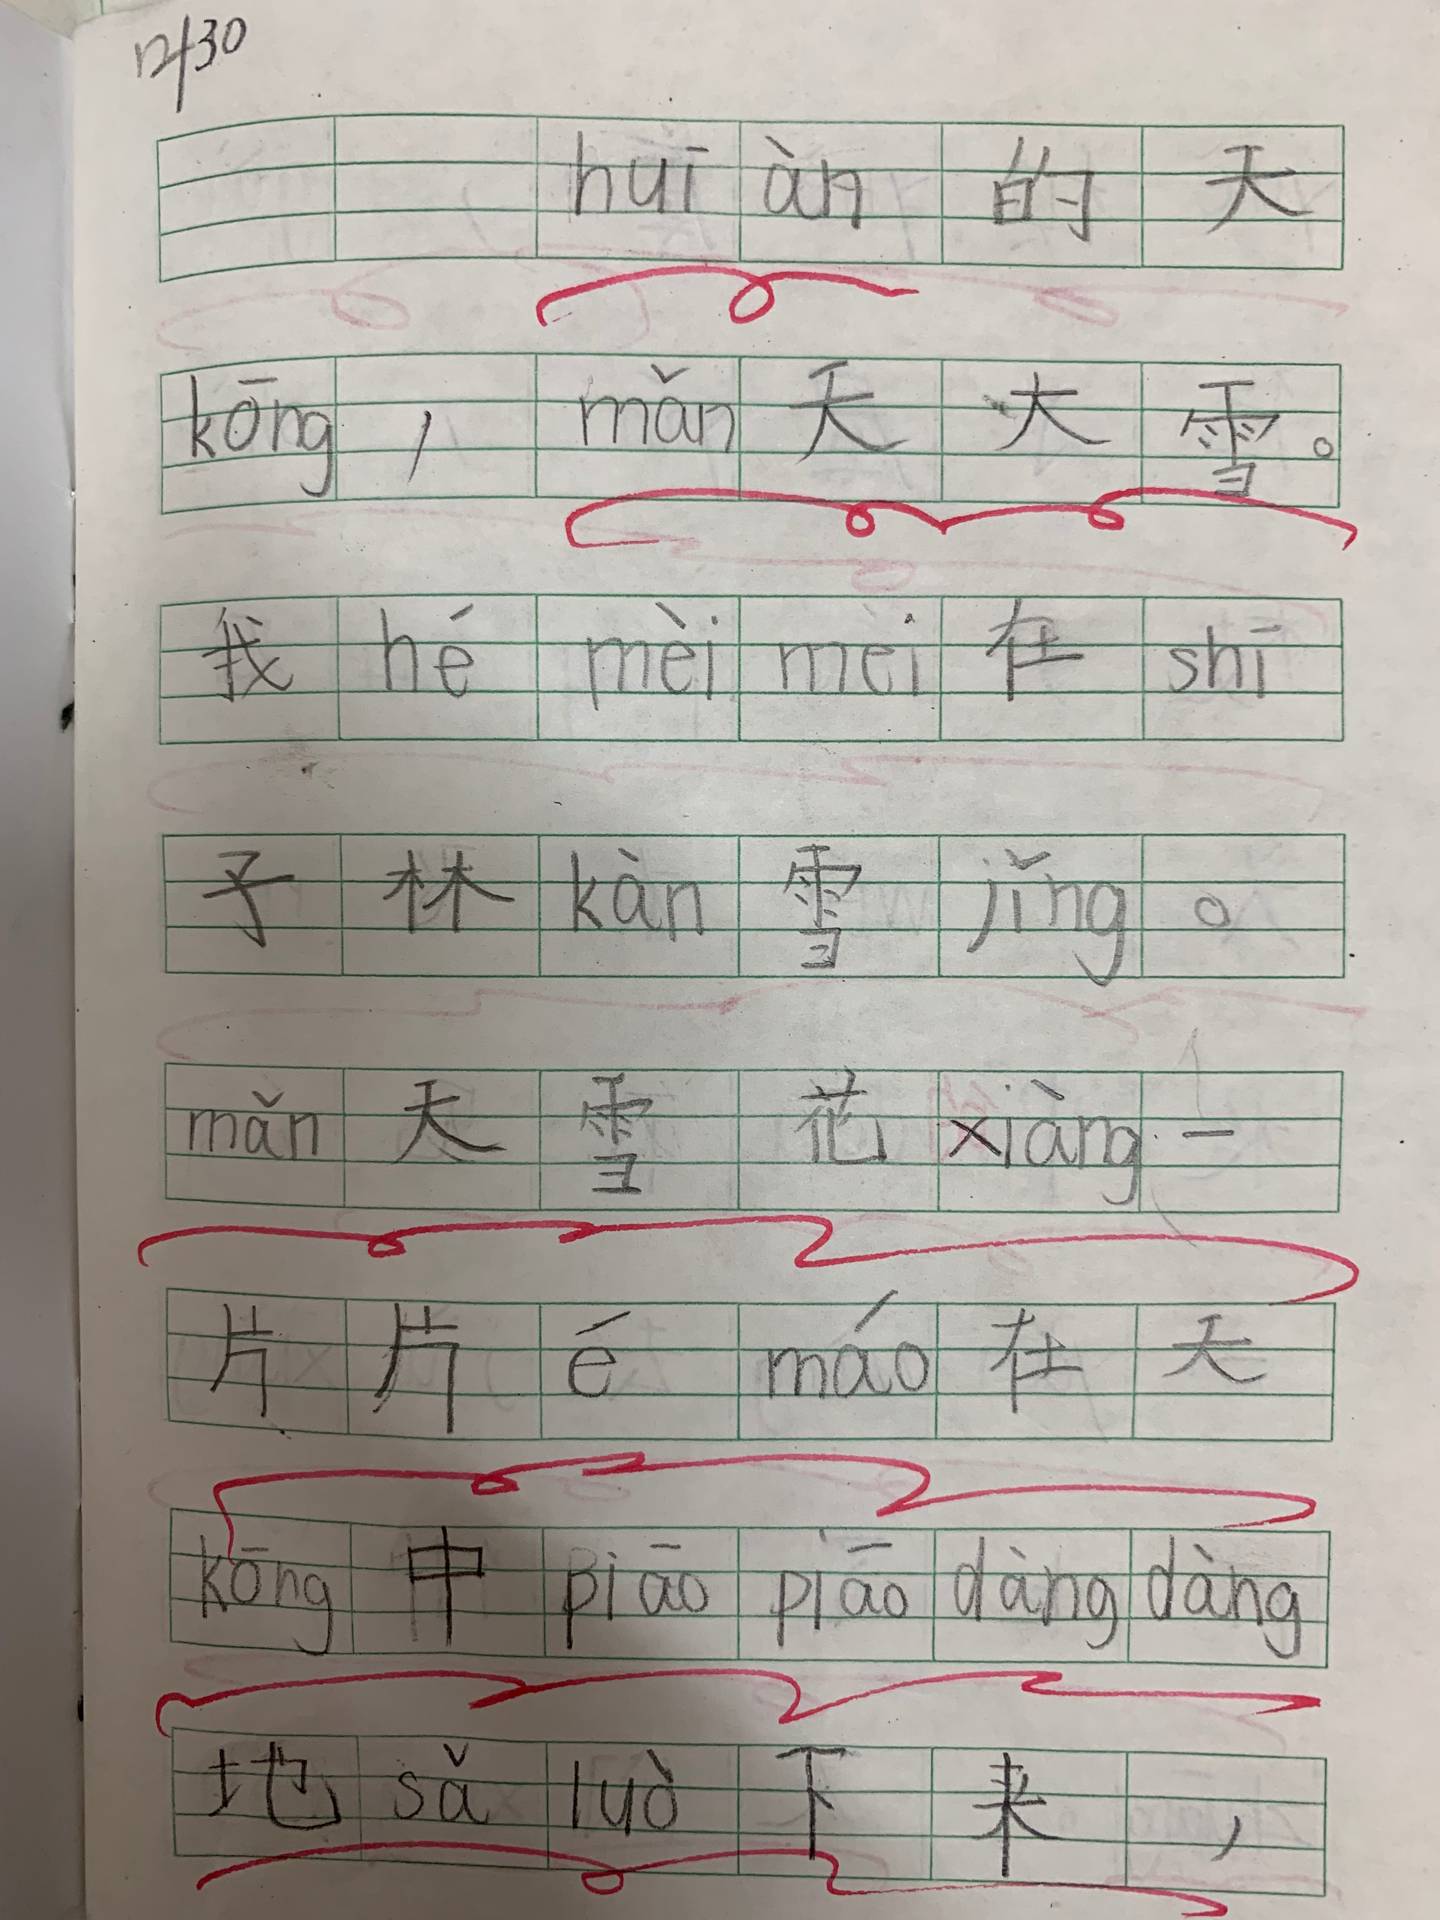 12/30
huī àn 的 天
kōng , mǎn 天 大 雪 。
我 hé mèi mèi 在 shī
子 林 kàn 雪 jǐng 。
mǎn 天 雪 花 xiàng 一
片 片 é máo 在 天
kōng 中 piāo piāo dàng dàng
地 sǎ luò 下 来 ,